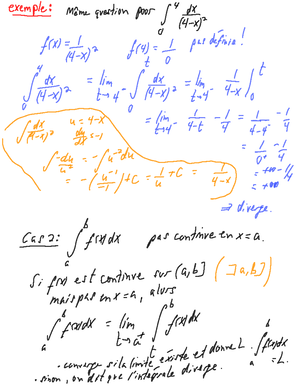 exemple: Même question pour ∫₀⁴ dx/(4-x)²
f(x) = 1/(4-x)² f(4) = 1/0 pas définie!
∫₀⁴ dx/(4-x)² = lim t→4⁻ ∫₀ᵗ dx/(4-x)² = lim t→4⁻ 1/(4-x) |₀ᵗ
= lim t→4⁻ 1/(4-t) - 1/4 = 1/(4-4⁻) - 1/4
= 1/0⁺ - 1/4
= +∞ - 1/4
= +∞
⇒ diverge.
∫ dx/(4-x)² u = 4-x
du/dx = -1
∫ -du/u² = -∫ u⁻² du
= -(u⁻¹/-1) + C = 1/u + C = 1/(4-x)
Cas 2: ∫ₐᵇ f(x)dx pas continue en x=a.
Si f(x) est continue sur (a,b] (]a,b])
mais pas en x=a, alors
∫ₐᵇ f(x)dx = lim t→a⁺ ∫ₜᵇ f(x)dx
· converge si la limite existe et donne L. ∫ₐᵇ f(x)dx = L.
· sinon, on dit que l'intégrale diverge.